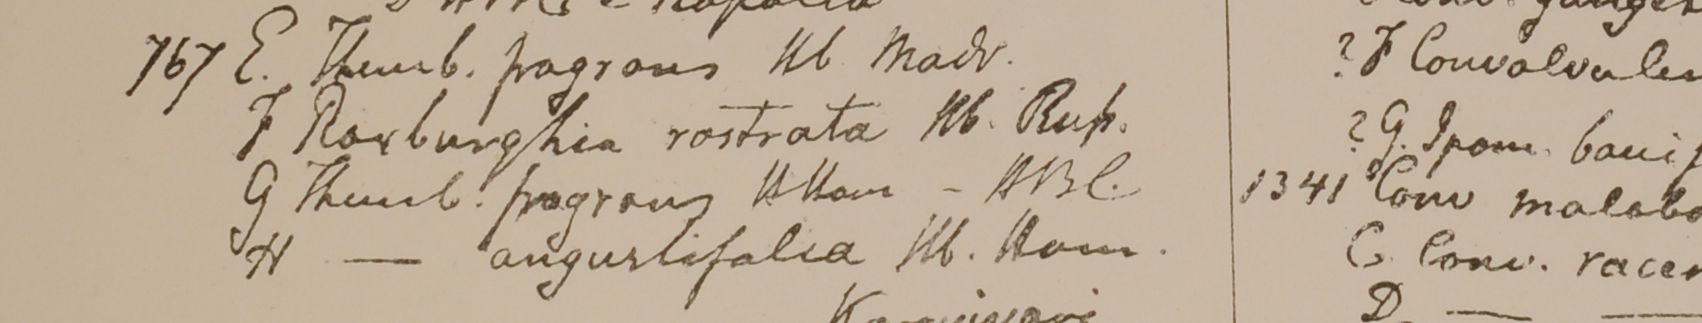 767 E. Thunb. fragrans Hb. Madr.
F Roxburghia rostrata Hb. Rup.
G Thunb. fragrans HHam - HBC.
H — angustifolia Hb. Ham.
? F Convolvulu
? G. Ipom.
1341 Conv malaba
C. Conv. race
D — —